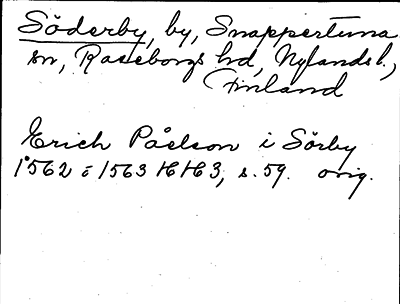 Söderby, by, Snappertuna
sn, Raseborgs hd, Nylands l.,
Finland
Erich Påelson i Sörby
1562 = 1563 HH 3, s. 59. orig.